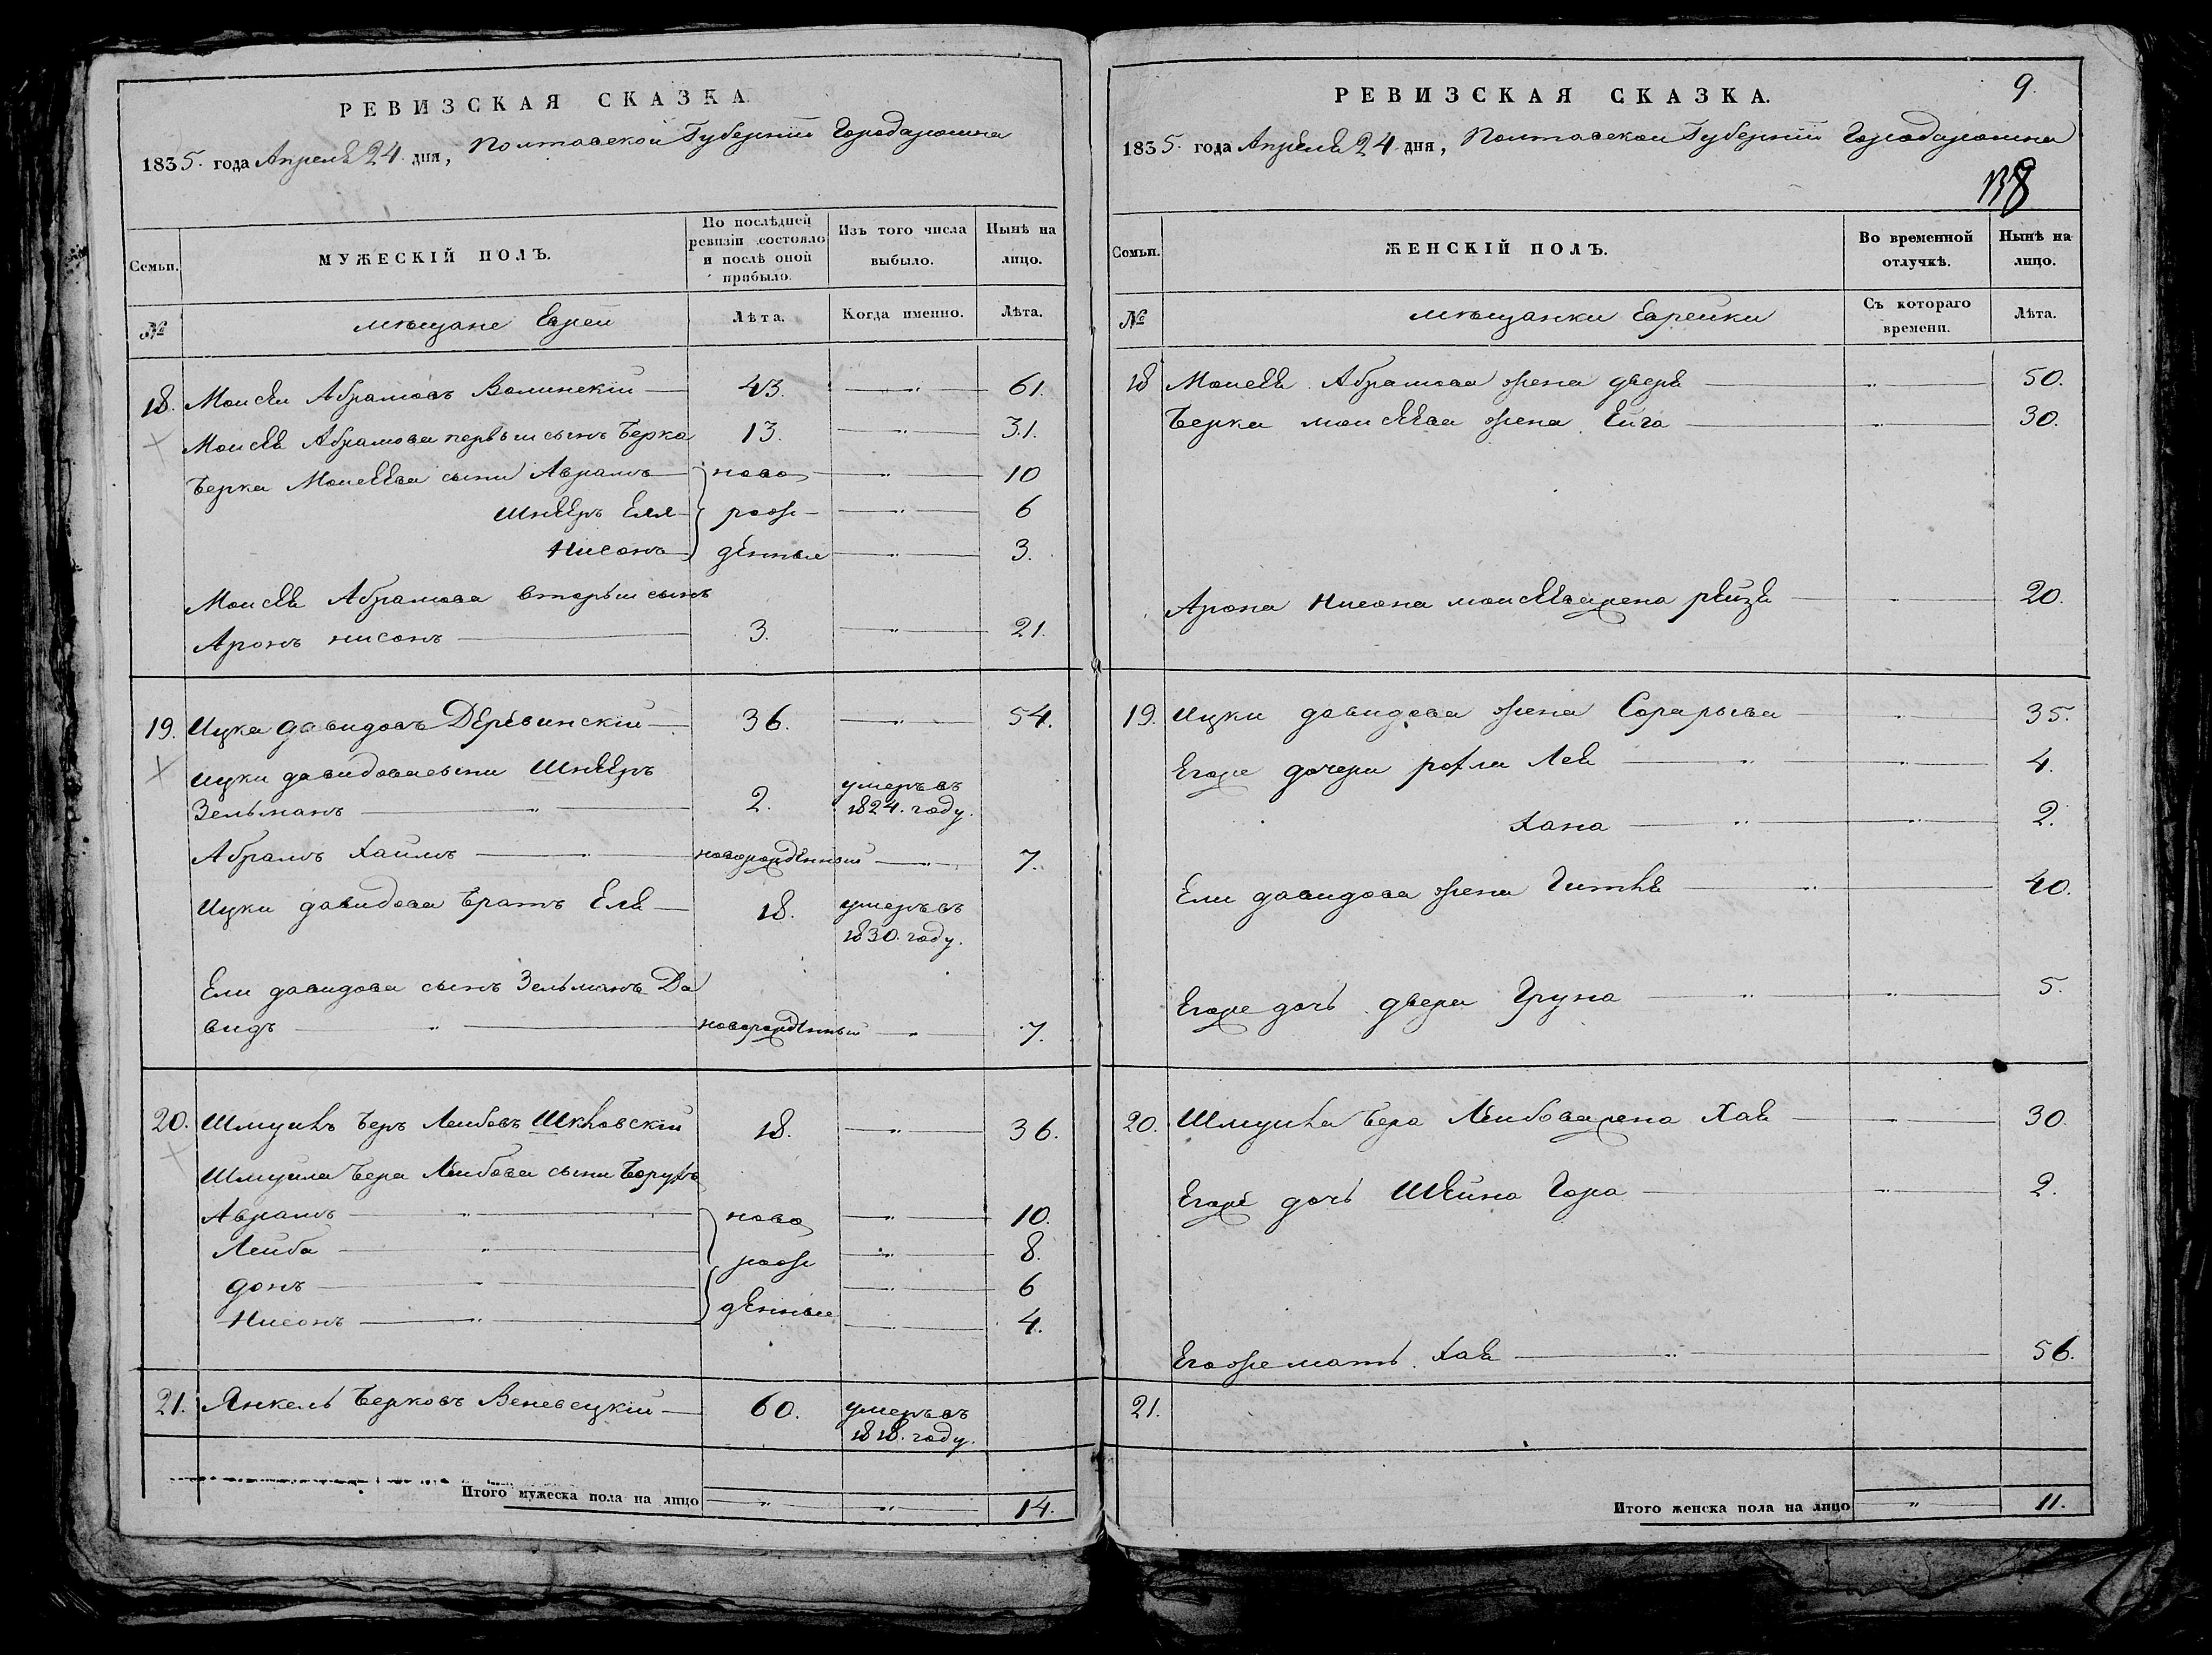 РЕВИЗСКАЯ СКАЗКА.
1835. года Апреля 24. дня, Полтавской Губернiи Города
Семьи.
МУЖЕСКІЙ ПОЛЪ.
По послѣдней ревизіи состояло и послѣ оной прибыло.
Изъ того числа выбыло.
Нынѣ на лицо.
№
мѣщане Евреи
Лѣта.
Когда именно.
Лѣта.
18. Моисей Абрамовъ Волинскій 43. 61.
Моисея Абрамова первый сынъ Берка 13. 31.
Берка Моисеева сыни Аврамъ ново 10
Шнѣеръ Еля рож 6
Нисонъ денные 3.
Моисея Абрамова вторый сынъ
Аронъ нисонъ 3. 21.
19. Ицка давидовъ Деревинскій 36. 54.
Ицки давидова сыни Шнѣеръ
Зельманъ 2. умеръ въ 1824. году.
Абрамъ Хаимъ новорожденный 7.
Ицки давидова братъ Еля 18. умеръ въ 1830. году.
Ели давидова сынъ Зельманъ Да
видъ новорожденный 7.
20. Шмуилъ Беръ Лейбовъ 18. 36.
Шмуила Бера Лейбова сыни Борухъ
Аврамъ ново 10.
Лейба рож 8.
донъ 6
Нисонъ денные 4.
21. Янкель Берковъ Веневецкій 60. умеръ въ 1818. году.
Итого мужеска пола на лицо 14.
9.
РЕВИЗСКАЯ СКАЗКА.
1835. года Апреля 24 дня, Полтавской Губернiи Города
Семьи.
ЖЕНСКІЙ ПОЛЪ.
Во временной отлучкѣ.
Нынѣ на лицо.
№
мѣщанки Еврейки
Съ котораго времени.
Лѣта.
18 Моисея Абрамова жена двера 50.
Берка моисеева жена Ейга 30.
Арона Нисона моисеева жена рейзя 20.
19. Ицки давидова жена Сорарыва 35.
Егоже дочери рохли Лея 4.
Хана 2.
Ели давидова жена Гитля 40.
Егоже дочь двера Груна 5.
20. Шмуила Бера Лейбова жена Хая 30.
Егоже дочь Шейна Гора 2.
Егоже мать Хая 56.
21.
Итого женска пола на лицо 11.